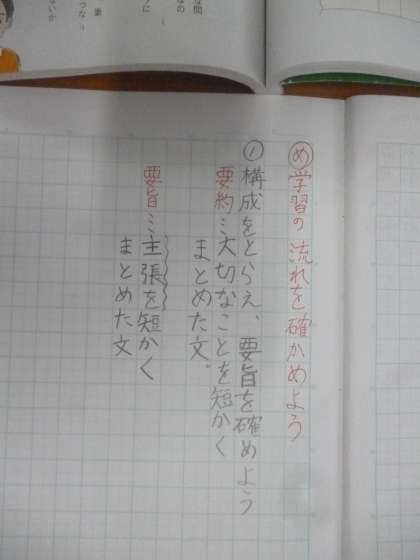 め 学習の流れを確かめよう
① 構成をとらえ、要旨を確めよう
要約…大切なことを短かく
まとめた文。
要旨…主張を短かく
まとめた文